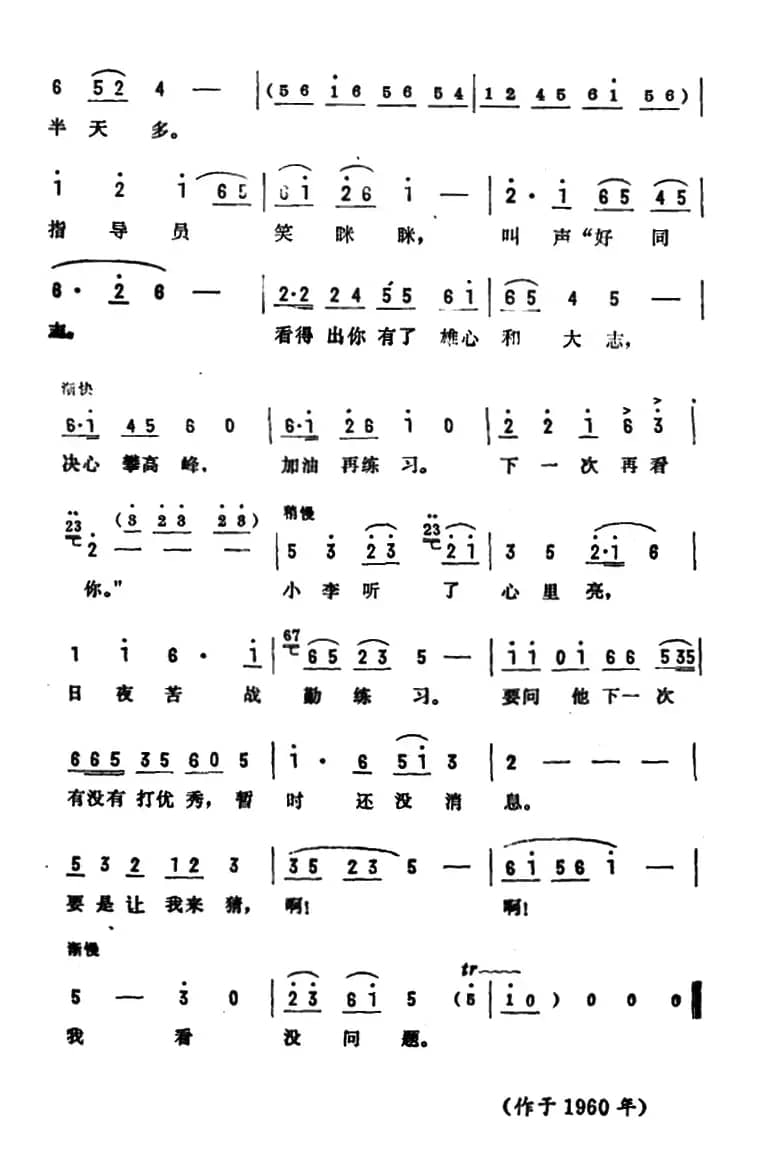 6 52 4 — | (56 16 56 54 | 12 45 61 56) |
半天多。
1 2 1 65 | 61 26 1 — | 2· 1 65 45 |
指导员 笑眯眯， 叫声“好同
6· 2 6 — | 2·2 24 55 61 | 65 4 5 — |
志。 看得出你有了雄心和大志，
渐快
6·1 45 6 0 | 6·1 26 1 0 | 2 2 1 6 3 |
决心攀高峰， 加油再练习。 下一次再看
23 (3 23 23) 稍慢 23
2 — — — | 5 3 23 21 | 3 5 2·1 6 |
你。” 小李听了心里亮，
67
1 1 6· 1 | 65 23 5 — | 11 01 66 535 |
日夜苦战勤练习。 要问他下一次
665 35 60 5 | 1· 6 51 3 | 2 — — — |
有没有打优秀，暂时还没消息。
5 3 2 12 3 | 35 23 5 — | 61 56 1 — |
要是让我来猜， 啊！ 啊！
渐慢
tr
5 — 3 0 | 23 61 5 (5 | 10) 0 0 0 |
我看没问题。
（作于1960年）